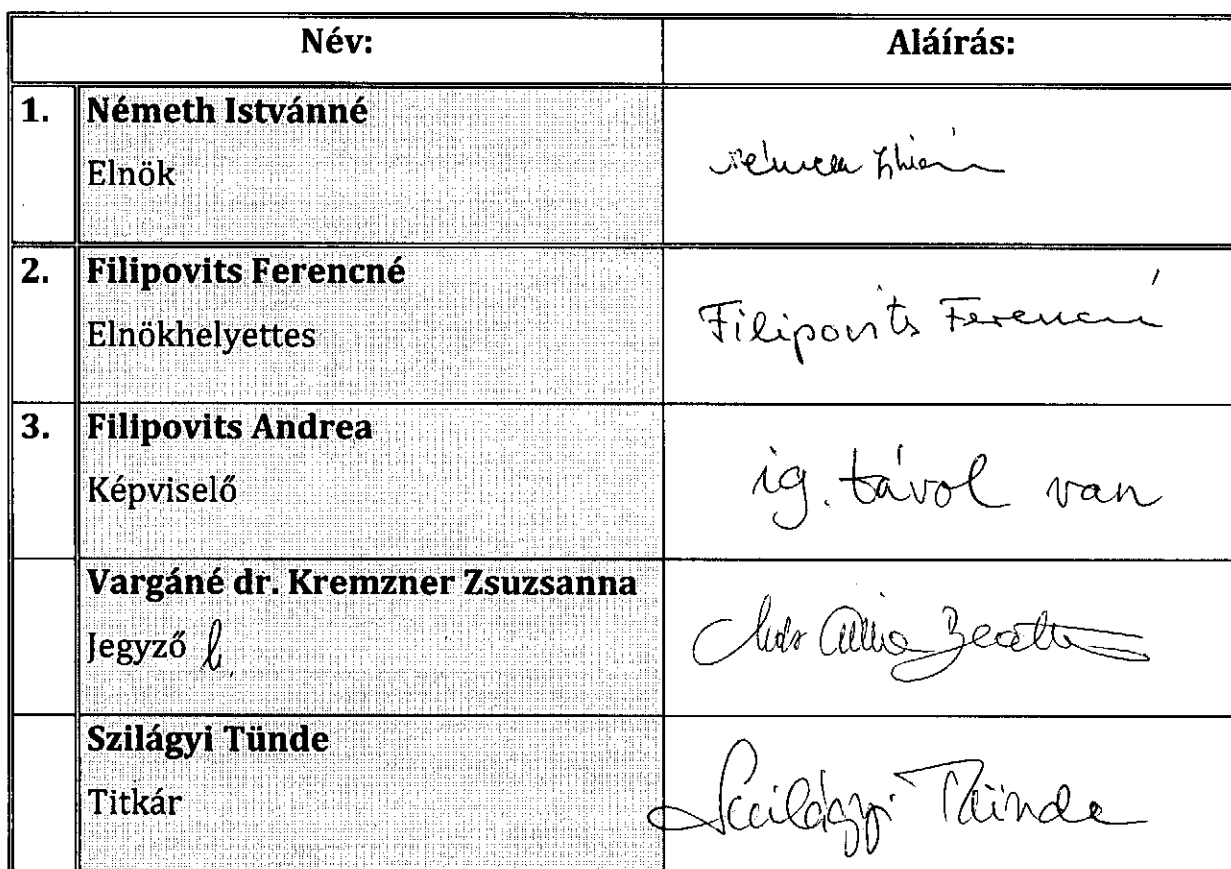 Név: Aláírás:
1. Németh Istvánné
Elnök
2. Filipovits Ferencné
Elnökhelyettes
Filipovits Ferencné
3. Filipovits Andrea
Képviselő
ig. távol van
Vargáné dr. Kremzner Zsuzsanna
Jegyző h.
Szilágyi Tünde
Titkár
Szilágyi Tünde